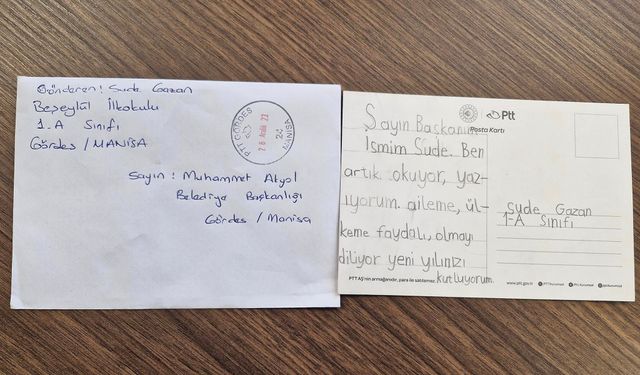 Gönderen: Sude Gazan
Beşeylül İlkokulu
1-A Sınıfı
Gördes / MANİSA
PTT GÖRDES
26 Aralık 22
24
MANİSA
Sayın : Muhammet Akyol
Belediye Başkanlığı
Gördes / Manisa
Ptt
Posta Kartı
Sayın Başkanım
İsmim Sude. Ben
artık okuyor, yaz-
ıyorum. aileme, ül-
keme faydalı, olmayı
diliyor yeni yılınızı
kutluyorum.
Sude Gazan
1-A Sınıfı
PTT AŞ'nin armağanıdır, para ile satılamaz.
www.ptt.gov.tr